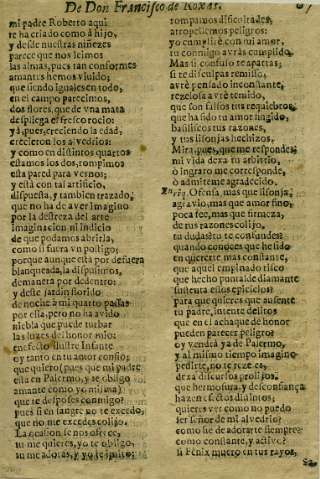 De Don Francisco de Roxas.
mi padre Roberto aqui
te ha criado como à hijo,
y desde nuestras niñezes
parece que nos leimos
las almas, pues tan conformes
amantes hemos viuido;
que siendo iguales en todo,
en el campo parecimos,
dos flores, que de vna mata
despliega el fresco rocio:
y à pues, creciendo la edad,
crecieron los alvedrios:
y como en distintos quartos
estamos los dos, rompimos
esta pared para vernos;
y està con tal artificio,
dispuesta, y tambien trazado,
que no ha de aver imagino
por la destreza del arte
imaginacion ni indicio
de que podamos abrirla,
como si fuera vn postigo;
porque aunque està por defuera
blanqueada, la dispusimos,
de manera por dedentro:
y deste jardin florido
de noche à mi quarto passas
por ella, pero no ha avido
niebla que puede turbar
las luzes del honor mio:
Infante
y tanto en tu amor confio;
que quiero (pues que mi padre
està en Palermo, y te obligo
amante como yo misma)
que te desposes conmigo?
pues si en sangre no te excedo,
que no me excedes colijo.
La ocasion se nos ofrece,
tu me quieres, yo te obligo,
su me adoras, y yo te estimo:
rompamos dificultades,
atropellemos peligros:
yo cumpli è con mi amor,
tu conmigo avràs cumplido.
Mas si confuso te apartas,
si te disculpas remisso,
avrè pensado inconstante,
rezelosa avrè temido,
que son falsos tus requiebros
que ha sido tu amor fingido,
basiliscos tus razones,
y tus lisonjas hechizos.
Mira, pues, que me respondes,
mi vida dexa tu arbitrio,
ò ingrato me corresponde,
ò admiteme agradecido.
Enriq. Ofensa, mas que lisonja,
agravio, mas que amor fino,
poca fee, mas que firmeza,
de tus razones colijo,
tu dudaste te confundes?
quando conoces que he sido
en quererte mas constante,
que aquel empinado risco
que hecho punta de diamante
sustenta essos epiciclos:
para que quieres que ausente
tu padre, intente delitos
que en el achaque de honor
pueden parecer peligro?
oy vendrà ya de Palermo,
y al mismo tiempo imagino
pedirte, no te rezeles,
dexa discursos prolijos,
que hermosura, y desconfiança
hazen efectos distintos;
quieres ver como no puedo
ser señor de mi alvedrio?
como se de adorarte siempre?
como constante, y activo?
si Fenix muero en tus rayos,